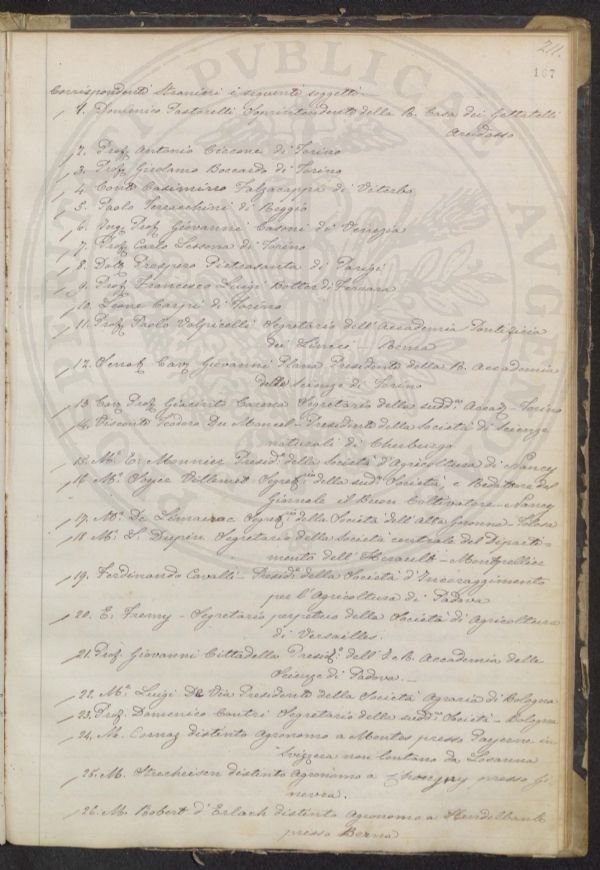 211.
167
Corrispondenti Stranieri i seguenti soggetti
1. Domenico Pastorelli Soprintendente della R. Casa dei Gettatelli
Arcidosso
2. Prof. Antonio Ciccone di Torino
3. Prof. Girolamo Boccardo di Torino
4. Conte Casimiro Falzacappa di Viterbo
5. Paolo Terrachini di Reggio
6. Ing. Prof. Giovanni Casoni di Venezia
7. Prof. Carlo Lessona di Torino
8. Dott. Prospero Pietrasanta di Parigi
9. Prof. Francesco Luigi Botter di Ferrara
10. Leone Carpi di Torino
11. Prof. Paolo Volpicelli Segretario dell'Accademia Pontificia
dei Lincei - Roma
12. Cav. Giovanni Plana Presidente della R. Accademia
delle scienze di Torino
13 Cav. Prof. Giacinto Carena Segretario della sudd. Accad. - Torino
14. Visconte Teodoro Du Moncel - Presidente della Società di Scienze
naturali di Cherburgo
15. Mr. E. Monnier Presid. della Società d'Agricoltura di Nancy
16 Mr. Soyer Villemet Segret. della sudd. Società, e Redattore del
Giornale il Buon Coltivatore - Nancy
17. Mr. De Limairac Segret. della Società dell'Alta Garonna - Tolosa
18 Mr. S. Dupin Segretario della Società centrale del Diparti-
mento dell'Herault - Montpellier
19. Ferdinando Cavalli - Presid. della Società d'Incoraggimento
per l'Agricoltura di Padova
20. E. Fremy - Segretario perpetuo della Società di Agricoltura
di Versailles.
21. Prof. Giovanni Cittadella Presid. dell'I. R. Accademia delle
Scienze di Padova. -
22. Mr. Luigi De Via Presidente della Società Agraria di Bologna
23. Prof. Domenico Contri Segretario della sudd. Società - Bologna
24. M. Cornaz distinto Agronomo a Montet presso Payerne in
Svizzera non lontano da Losanna
25. M. Streckeisen distinto Agronomo a presso Gi
nevra.
26. M. Robert d'Erlach distinto Agronomo a Hindelbank
presso Berna